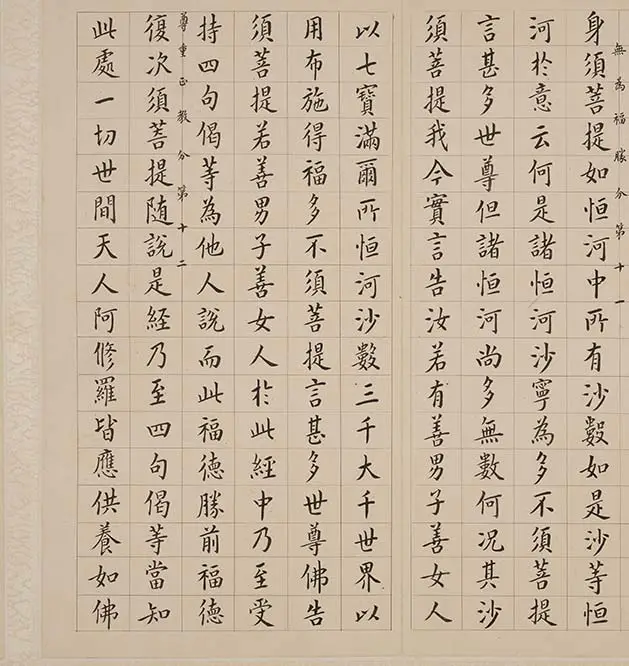 無為福勝分第十一
身須菩提如恒河中所有沙數如是沙等恒
河於意云何是諸恒河沙寧為多不須菩提
言甚多世尊但諸恒河尚多無數何况其沙
須菩提我今實言告汝若有善男子善女人
以七寶滿爾所恒河沙數三千大千世界以
用布施得福多不須菩提言甚多世尊佛告
須菩提若善男子善女人於此經中乃至受
持四句偈等為他人說而此福德勝前福德
尊重正教分第十二
復次須菩提隨說是經乃至四句偈等當知
此處一切世間天人阿修羅皆應供養如佛